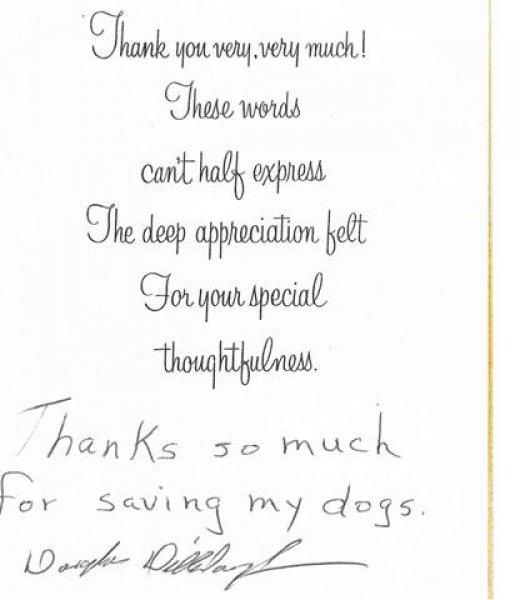 Thank you very, very much!
These words
can't half express
The deep appreciation felt
For your special
thoughtfulness.
Thanks so much
for saving my dogs.